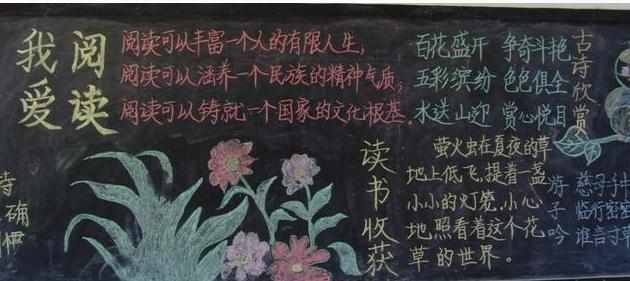 我 阅
爱 读
阅读可以丰富一个人的有限人生,
阅读可以涵养一个民族的精神气质;
阅读可以铸就一个国家的文化根基.
百花盛开 争奇斗艳
五彩缤纷 色色俱全
水送山迎 赏心悦目
古诗欣赏
读书收获
萤火虫在夏夜的草
地上低飞,提着一盏
小小的灯笼,小心
地照看着这个花
草的世界。
游子吟
慈母手中
临行密密
谁言寸草
诗
确